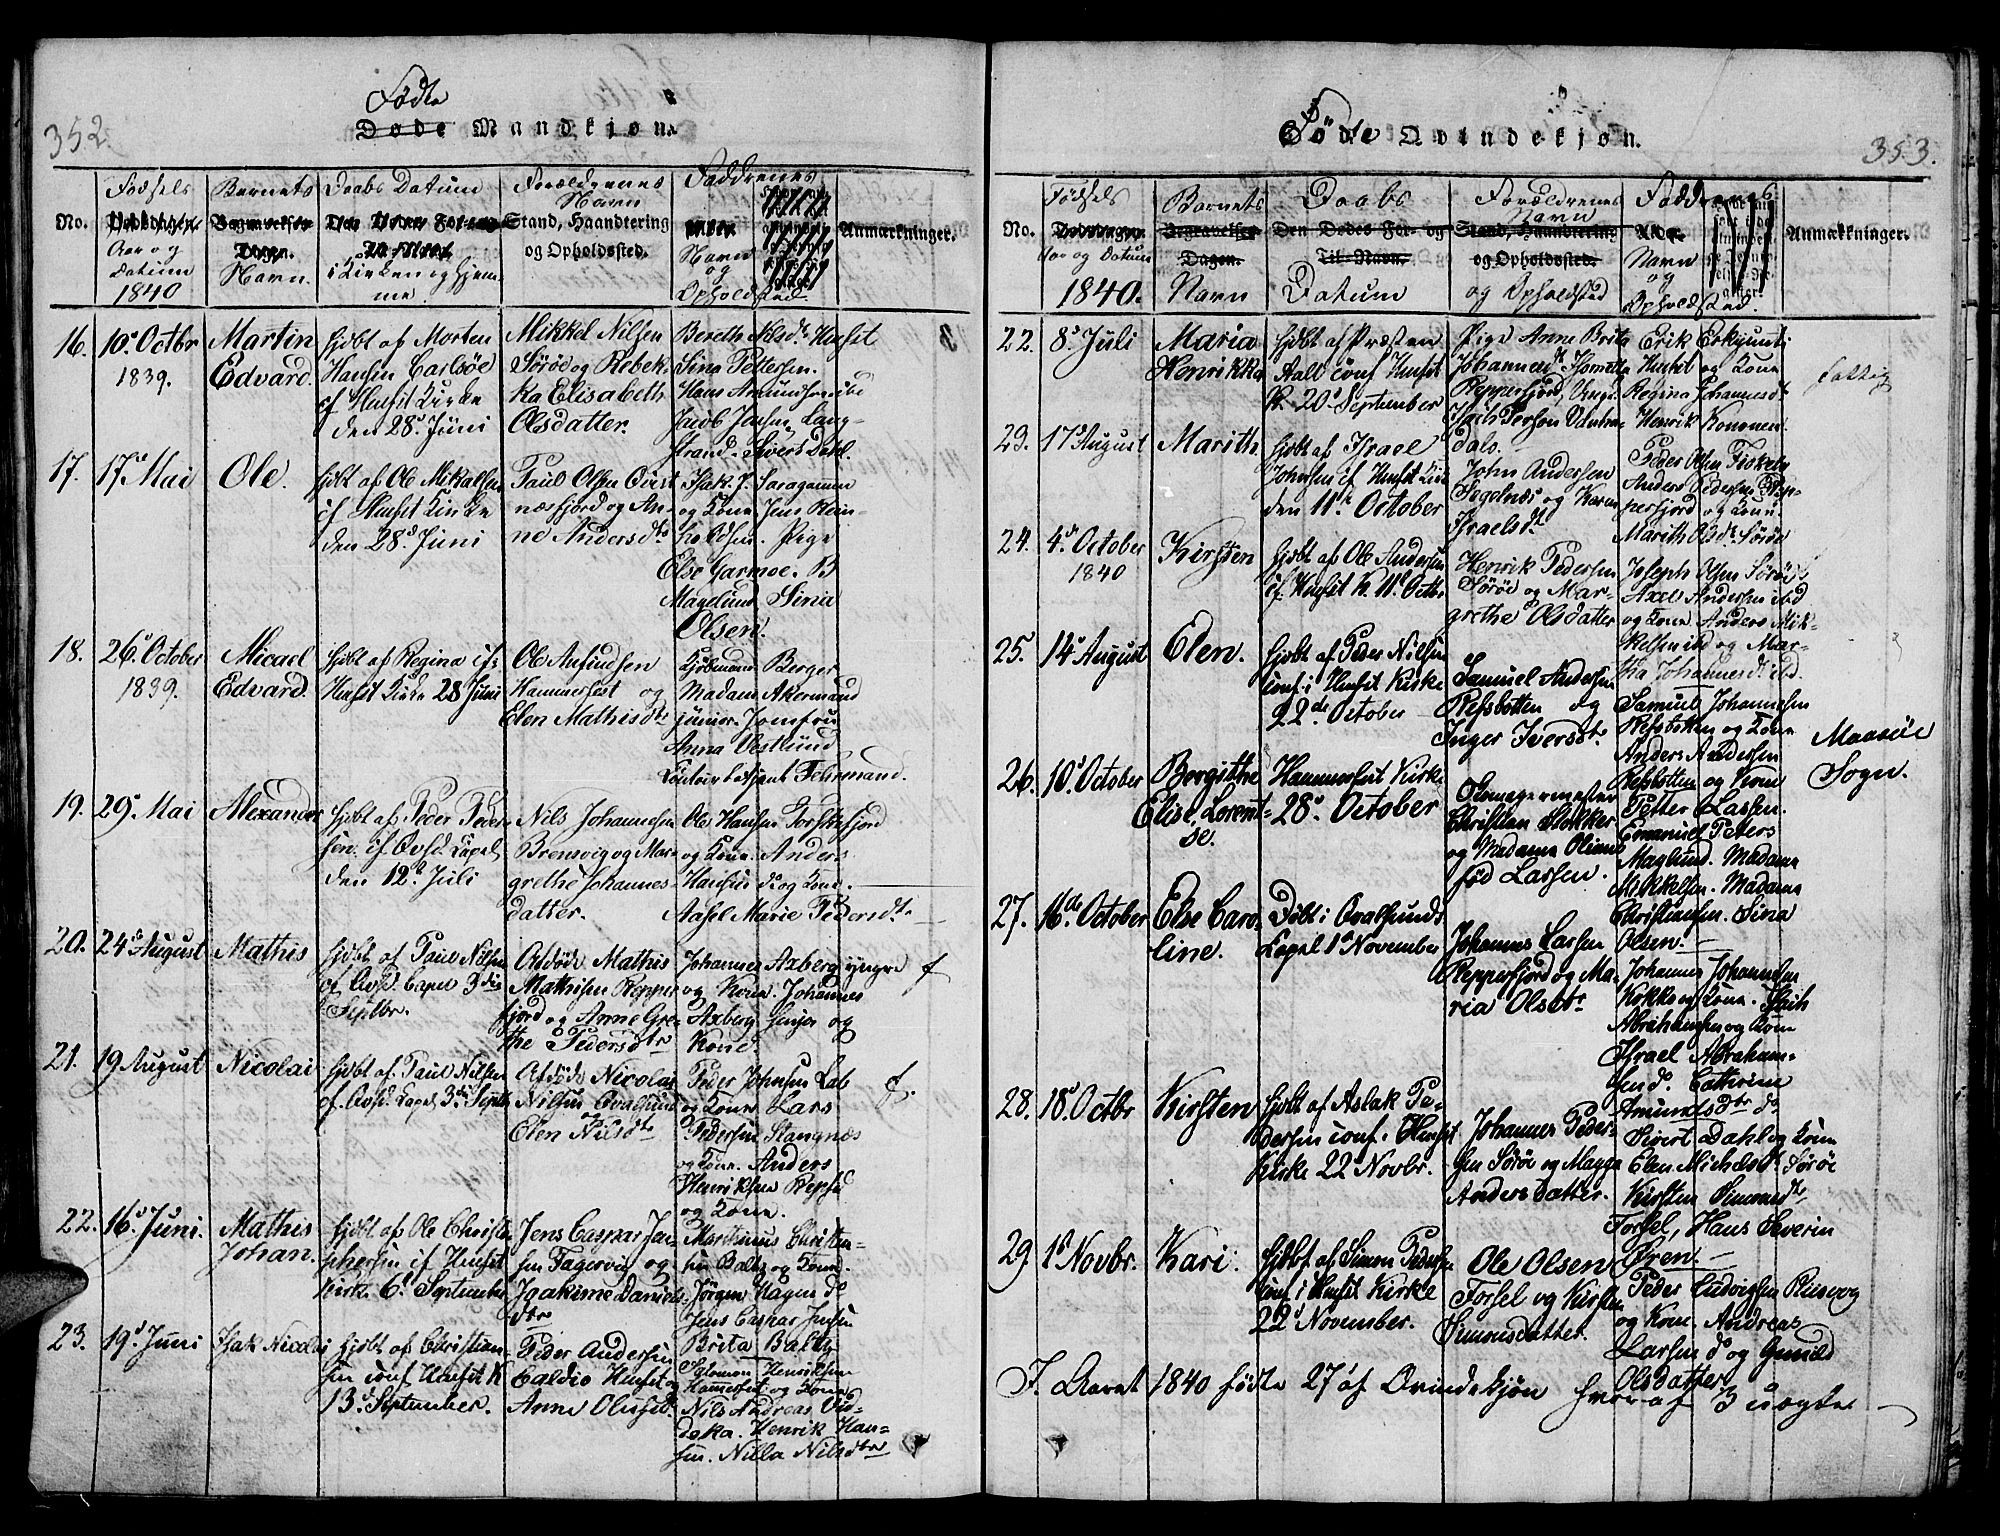 352.
Fødte
Døde Mandkjøn.
No.
Fødsels
Aar og
Datum
1840
Barnets
Begravelses
Dagen.
Navn.
Daabs Datum
i Kirken og Hjem-
me.
Forældrenes
Navn
Stand, Haandtering
og Opholdssted.
Faddrenes
Navn
og
Opholdsted
Anmærkninger.
16.
10d Octbr
1839.
Martin
Edvard.
hjdbt af Morten
Hansen Carlsöe
cf Hmfst Kirke
den 28d Juni
Mikkel Nilsen
Söröe og Rebek-
ka Elisabeth
Olsdatter.
Bereth Nilsdr Hmfst
Sina Pettersen.
Hans Amundsen ibd
Jacob Jensen Lang-
strand. Sivert Dahl.
17.
17d Mai
Ole.
hjdbt af Ole Mikalsen
cf Hmfst Kirke
den 28d Juni
Paul Olsen Qvist
næsfjord og An-
ne Andersdtr
Isak P. Saragammen
og Kone Jens Rein-
holdsen. Pige
Else Garmoe. B
Magelund Sina
Olsen.
18.
26d October
1839.
Micael
Edvard.
hjdbt af Regina cf:
Hmfst Kirke 28 Juni
Ole Amundsen
Hammerfest og
Elen Mathisdtr
Kjöbmand Berger
Madam Akermand
junior. Jomfru
Anna Vestlund
Contoirbetjent Fehrmand.
19.
29d Mai
Alexander
hjdbt af Peder Peder
sen. cf Qvsd. Capel
den 12te Juli
Nils Johannesen
Brensvig og Mar-
grethe Johannes
datter.
Ole Hansen Torskefjord
og Kone. Anders
Hansen do og Kone.
Aasel Marie Pedersdtr
20.
24de August
Mathis
hjdbt af Paul Nilsen
cf Qvsd. Capel 3die
Septbr.
Afdöde Mathis
Mathisen Repper
fjord og Anne Gre-
the Pedersdtr
Johannes Axberg yngre
og Kone. Johannes
Axberg senjor og
Kone.
f
21.
19 August
Nicolai
hjdbt af Paul Nilsen
cf Qvsd. Capel 3die Septb
Afdöde Nicolai
Nilsen Qvalsund
og
Elen Nilsdtr
Peder Johnsen Lab
og Kone Lars
Pedersen Stangnæs
og Kone. Anders
Henriksen Repfd
og Kone.
f.
22.
16d Juni.
Mathis
Johan.
hjdbt af Ole Christo
phersen cf Hmfst
Kirke 6d September
Jens Caspar Jen-
sen Fagervig og
Joakime Daniels-
dtr
Marthinus Christen-
sen Baltz og Kone.
Jörgen Hagen do
Jens Caspar Jensen
Brita Baltz
23.
19d Juni
Isak Nicolai
hjdbt af Christian-
sen conf Hmfst K
13d September.
Peder Andersen
Caldio Hmfst og
Anne Olufsd.
Salomon Henriksen
Hammerfest og Kone
Nils Andreas Vid-
deka. Henrik Han-
sen. Nilla Nilsdtr
353.
Föde Qvindekjøn.
No.
Fødsels
Aar og Datum
1840.
Barnets
Begravelses
Dagen.
Navn
Daabs
Den Dødes For- og
Til-Navn.
Datum
Forældrenes
Navn
Stand, Haandtering
og Opholdssted.
og Opholdsted
Faddrenes
Navn
og
Opholdsted.
Anmækninger.
22.
8d Juli
Maria
Henrikka
hjdbt af Præsten
Aall conf Hmfst
K. 20d September
Pige Anne Brita
Johannesd
Repperfjord, Ungk.
Dals.
Erik Erkgumti
Hmfst og Kone
Regina Johannesdr
Henrik Kononen
fattig
23.
17d August
Marith
hjdbt af Israel
Johnsen cf Hmfst Kirke
den 11te October
John Andersen
Segelnæs og Karen
Israelsdr
Peder Olsen Fiskeby
Anders Pedersen Rep-
perfjord og Kone.
Marith Olsdr Söröe
24.
4d October
1840
Kirsten
hjdbt af Ole Andersen
cf. Hmfst K 11te Octbr
Henrik Pedersen
Söröe og Mar-
grethe Olsdatter
Joseph Olsen Söröe
Axel Andersen ibd
og Kone Anders Mik-
kelsen ibd og Mar-
tha Johannesd ibd.
25.
14d August
Elen.
hjdbt af Peder Nilsen
conf. i Hmfst Kirke
22de October
Samuel Andersen
Refsbotten og
Inger Iversdtr
Samuel Johannesen
Refsbotten og Kone
Anders Andersen
Refsbotten og Kone
Petter Larsen.
Maasöe
Sogn.
26.
10d October
Bergithe
Elise Lorent-
se.
Hammerfest Kirke
28d October
Skomagermester
Christian Stokker
og Madame Oliane
fød Larsen.
Emanuel Peters
Maglund. Madame
Mikkelsen. Madame
Christiansen. Sina
Olsen.
27.
16de October
Else Caro-
line.
Döbt i Qvalsunds
Capel 1d November
Johannes Larsen
Repperfjord og Ma-
ria Olsdtr
Johannes Johannesen
Kokko og Kone. Isich
Abrahamsen og Kone
Israel Abraham-
sen do. Cathrine
Amundsdtr do
28.
18d Octbr
Kirsten
hjdbt af Aslak Pe-
dersen conf. i Hmfst
Kirke 22 Novbr.
Johannes Peder-
sen Söröe og Magga
Anders datter.
Sivert Dahl og Kone
Elen Michelsdtr Söröe
Kirsten Simonsdtr
Forsel, Hans Severin
Ören.
29.
1d Novbr.
Kari.
hjdbt af Simon Pedersen
conf i Hmfst Kirke
22d November.
Ole Olsen
Forsel og Kirsten
Simonsdatter.
Peder Ludvigsen Riisevog
og Kone. Andreas
Larsen do og Gunild
Olsdatter
I Aaret 1840 fødte 27 af Qvindekjön hvoraf 3 uægter